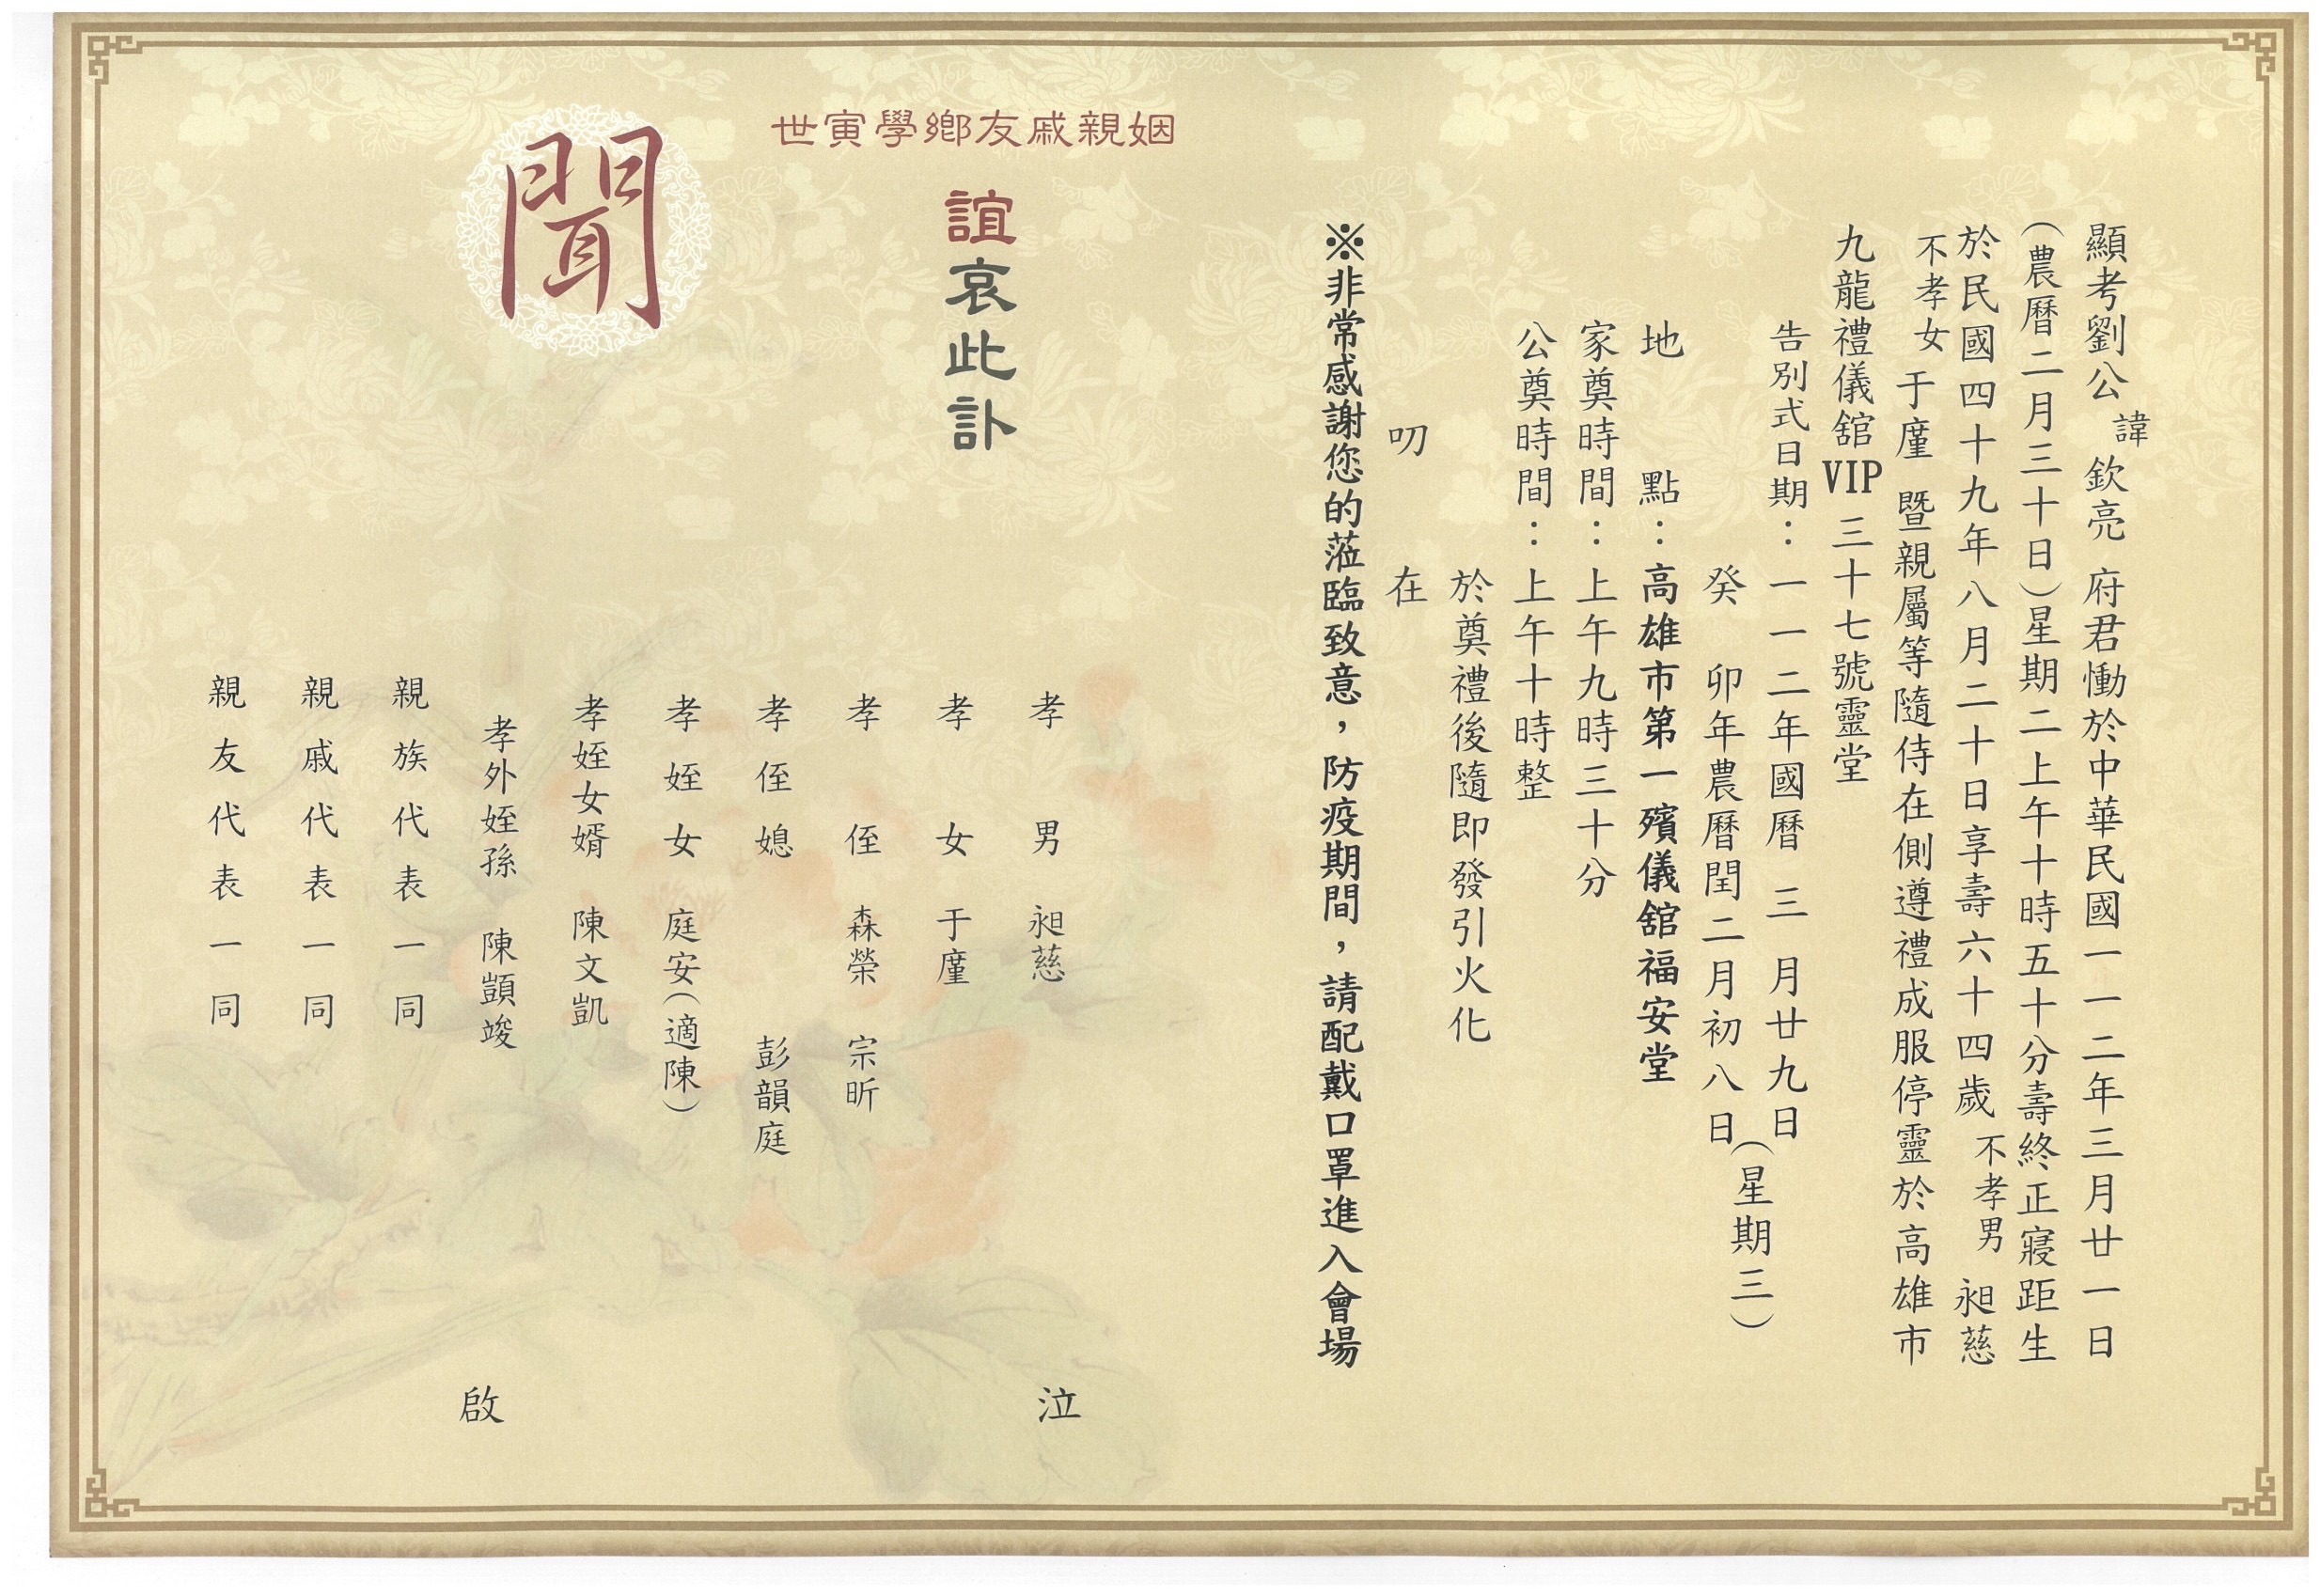 顯考劉公諱欽亮府君慟於中華民國一一二年三月廿一日
（農曆二月三十日）星期二上午十時五十分壽終正寢距生
於民國四十九年八月二十日享壽六十四歲不孝男昶慈
不孝女于廑暨親屬等隨侍在側遵禮成服停靈於高雄市
九龍禮儀舘VIP三十七號靈堂
告別式日期：一一二年國曆三月廿九日
癸卯年農曆閏二月初八日
（星期三）
地點：高雄市第一殯儀舘福安堂
家奠時間：上午九時三十分
公奠時間：上午十時整
於奠禮後隨即發引火化
叨在
※非常感謝您的蒞臨致意，防疫期間，請配戴口罩進入會場
姻親戚友鄉學寅世
誼哀此訃
聞
孝男昶慈
孝女于廑
孝侄森榮宗昕
孝侄媳彭韻庭
孝姪女庭安（適陳）
孝姪女婿陳文凱
孝外姪孫陳顗竣
親族代表一同
親戚代表一同
親友代表一同
泣
啟